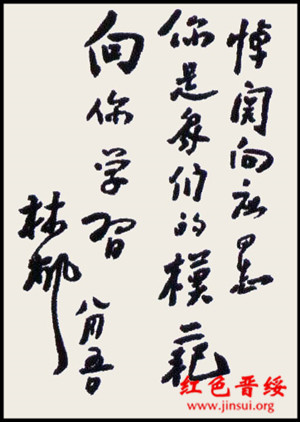 悼関向应同志
你是我们的模范
向你学習
林枫 八月五日
红色晋绥
www.jinsui.org